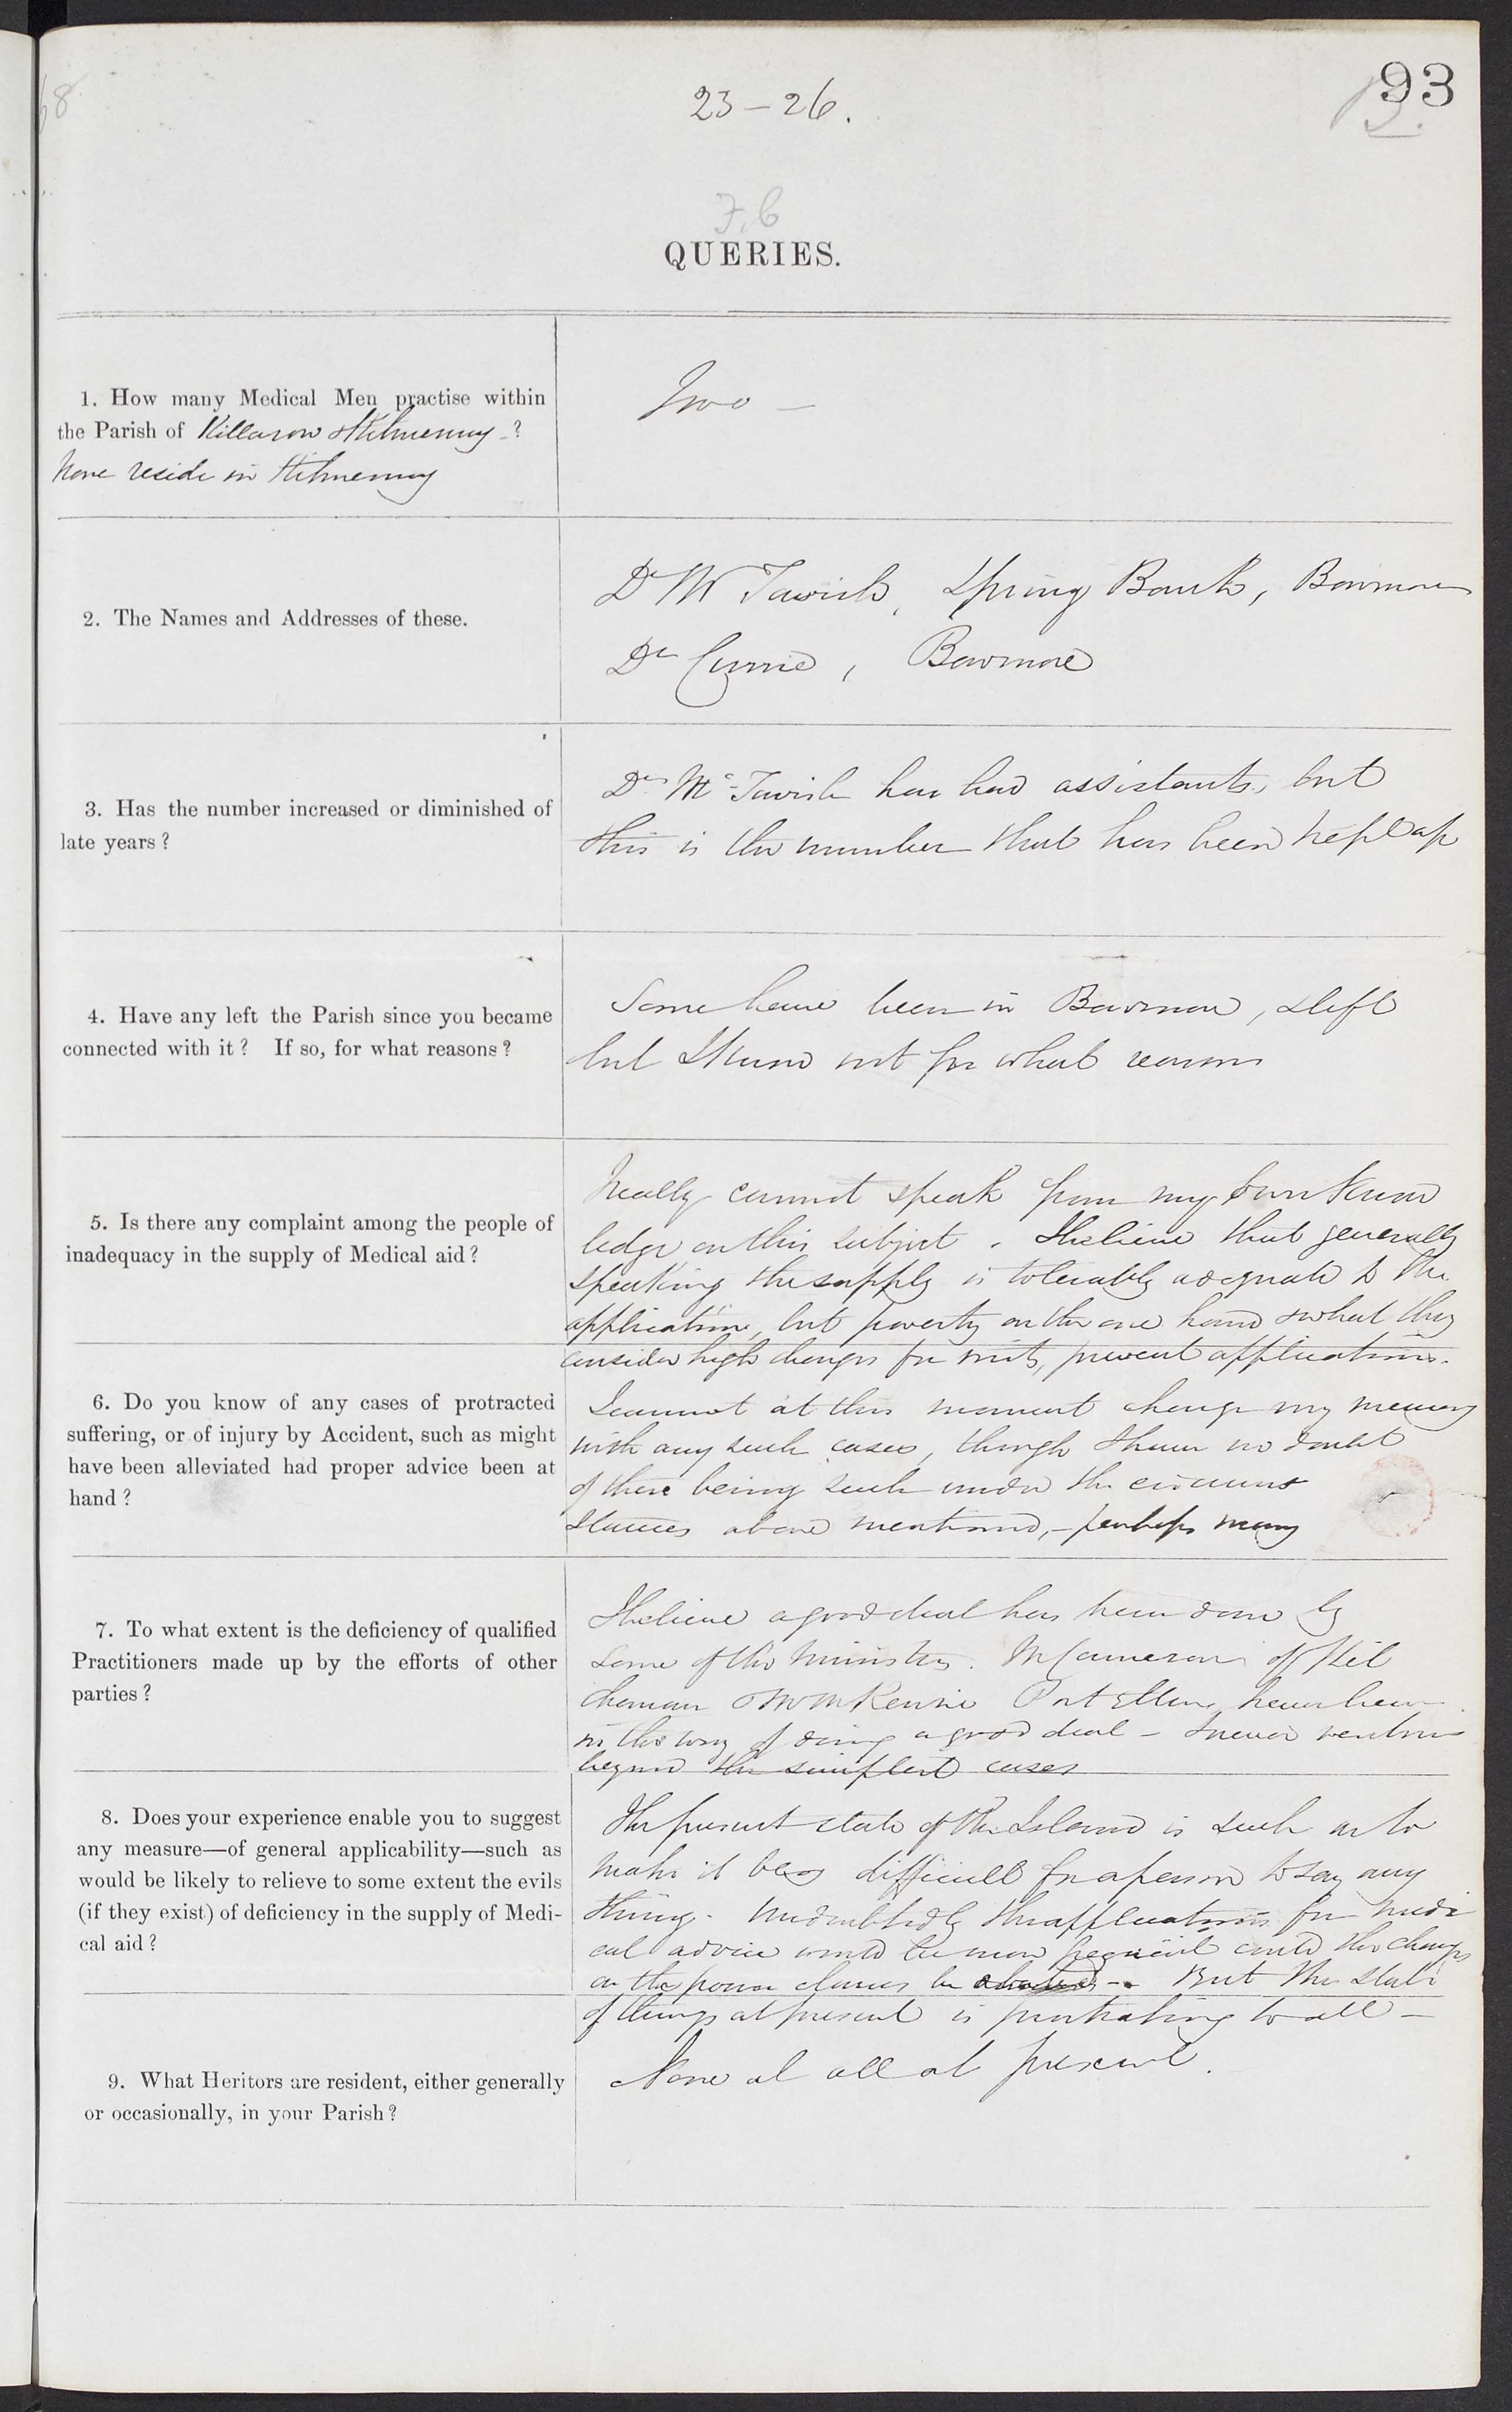 93
23-26.
F.C
QUERIES.
1. How many Medical Men practise within
the Parish of Killarow & Kilmenny ?
None reside in Kilmenny
Two —
2. The Names and Addresses of these.
Dr McTavish, Spring Bank, Bowmore
Dr Currie, Bowmore
3. Has the number increased or diminished of
late years?
Dr McTavish has had assistants, but
this is the number that has been kept up
4. Have any left the Parish since you became
connected with it? If so, for what reasons?
Some have been in Bowmore, & left
but I know not for what reasons
5. Is there any complaint among the people of
inadequacy in the supply of Medical aid?
Really cannot speak from my own know
ledge on this subject. I believe that generally
speaking the supply is tolerably adequate to the
applications, but poverty on the one hand & what they
consider high charges for visits, prevent applications.
6. Do you know of any cases of protracted
suffering, or of injury by Accident, such as might
have been alleviated had proper advice been at
hand?
I cannot at this moment charge my memory
with any such cases, though I have no doubt
of there being such under the circums
stances above mentioned, – perhaps many
7. To what extent is the deficiency of qualified
Practitioners made up by the efforts of other
parties?
I believe a good deal has been done by
some of the Ministers. Mr Cameron of Kil
choman & Mr McKenzie Port Ellen, have been
in the way of doing a good deal – I never venture
beyond the simplest cases
8. Does your experience enable you to suggest
any measure—of general applicability—such as
would be likely to relieve to some extent the evils
(if they exist) of deficiency in the supply of Medi-
cal aid?
The present state of the Island is such as to
make it very difficult for a person to say any
thing. Undoubtedly the applications for medi
cal advice would be more frequent could the charges
on the poorer classes be – But the state
of things at present is prostrating to all –
9. What Heritors are resident, either generally
or occasionally, in your Parish?
None at all at present.